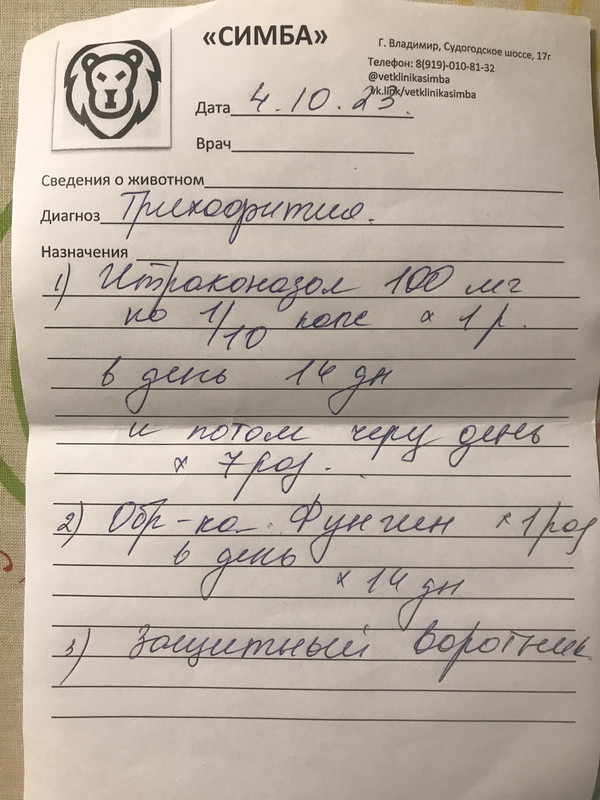 «СИМБА»
Г. Владимир, Судогодское шоссе, 17г
Телефон: 8(919)-010-81-32
@vetklinikasimba
vk.link/vetklinikasimba
Дата 4.10.23.
Врач
Сведения о животном
Диагноз Трихофития.
Назначения
1) Итраконазол 100 мг
по 1/10 капс х 1 р.
в день 14 дн
и потом через день
х 7 раз.
2) Обр-ка Фунгин х 1 раз
в день
х 14 дн
3) Защитный воротник